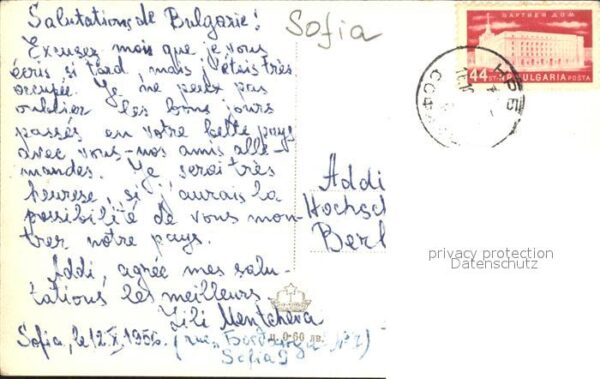 Salutations de Bulgarie!
Excusez mois que je vous
écris si tard, mais j'étais très
occupée. Je ne peux pas
oublier les bons jours
passés en votre belle pays
avec vous-nos amis alle-
mandes. Je serai très
heurese, si j'aurais la
possibilité de vous mon-
trer notre pays.
Addi, agrée mes salu-
tations les meilleurs.
Lili Mentcheva
Sofia, le 12.X.1956. (rue
Sofia
ц. 0·60 лв.
Sofia
ПАРТИЕН ДОМ
44 СТ. НР BULGARIA POSTA
НРБ
СОФ
Addi
Hochsch
Berl
privacy protection
Datenschutz